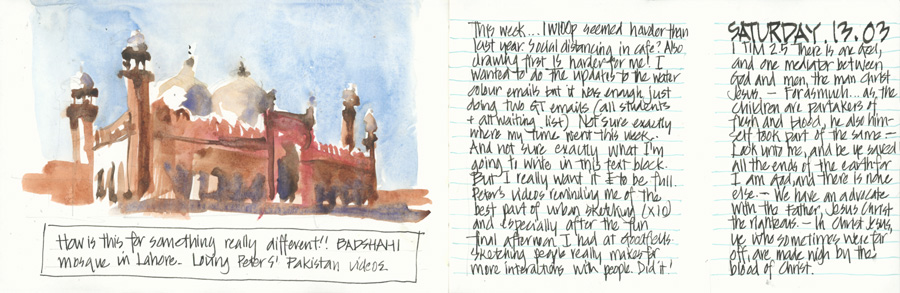 How is this for something really different!! BADSHAHI
mosque in Lahore. Loving Peter S' Pakistan videos.
This week... 1W100P seemed harder than
last year. Social distancing in cafe? Also
drawing first IS harder for me! I
wanted to do the updates to the water
colour emails but it was enough just
doing two emails (all students
+ all waiting list) Not sure exactly
where my time went this week..
And not sure exactly what I'm
going to write in this text block.
But I really want it to be full.
Peter's videos reminding me of the
best part of urban sketching (x10)
and especially after the fun
final afternoon I had at
sketching people really makes for
more interactions with people. Did it!
SATURDAY. 13.03
1 TIM 2.5 There is one God,
and one mediator between
God and men, the man Christ
Jesus. - Forasmuch... as the
children are partakers of
flesh and blood, he also him-
self took part of the same. -
Look unto me, and be ye saved
all the ends of the earth for
I am God, and there is none
else. - We have an advocate
with the Father, Jesus Christ
the righteous. - In Christ Jesus,
ye who sometimes were far
off, are made nigh by the
blood of Christ.